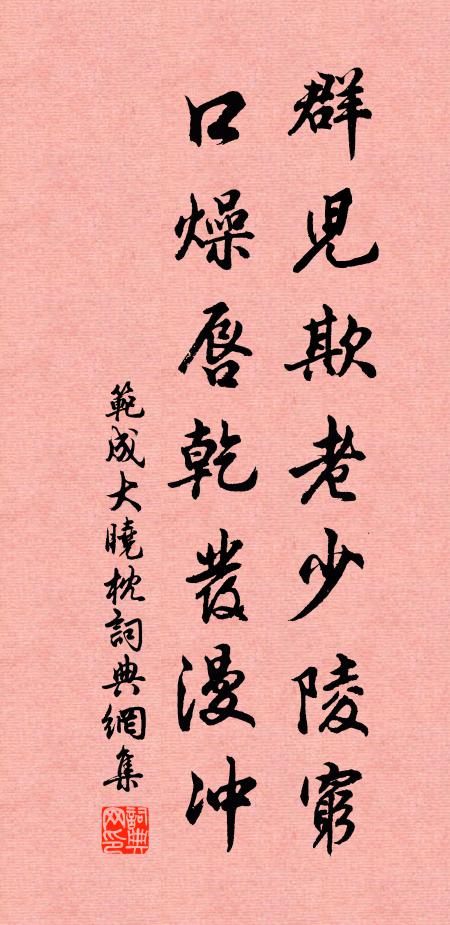 群兒欺老少陵窮
口燥唇乾髮漫冲
範成大曉枕詞典網集
詞典網印